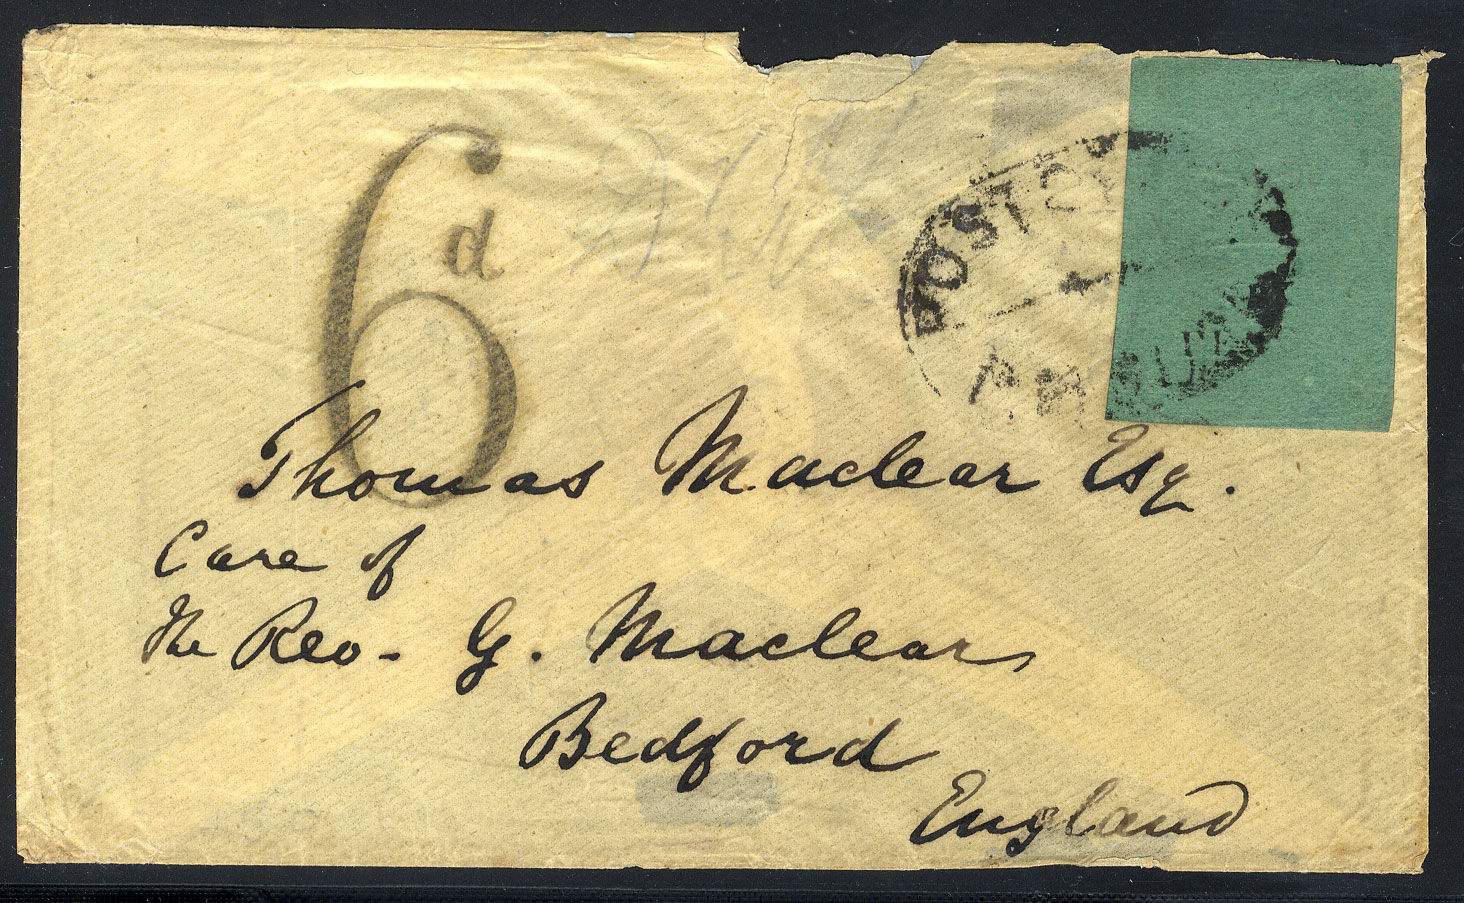 6d
POST OF
Thomas Maclear Esq.
Care of
The Rev. G. Maclear
Bedford
England